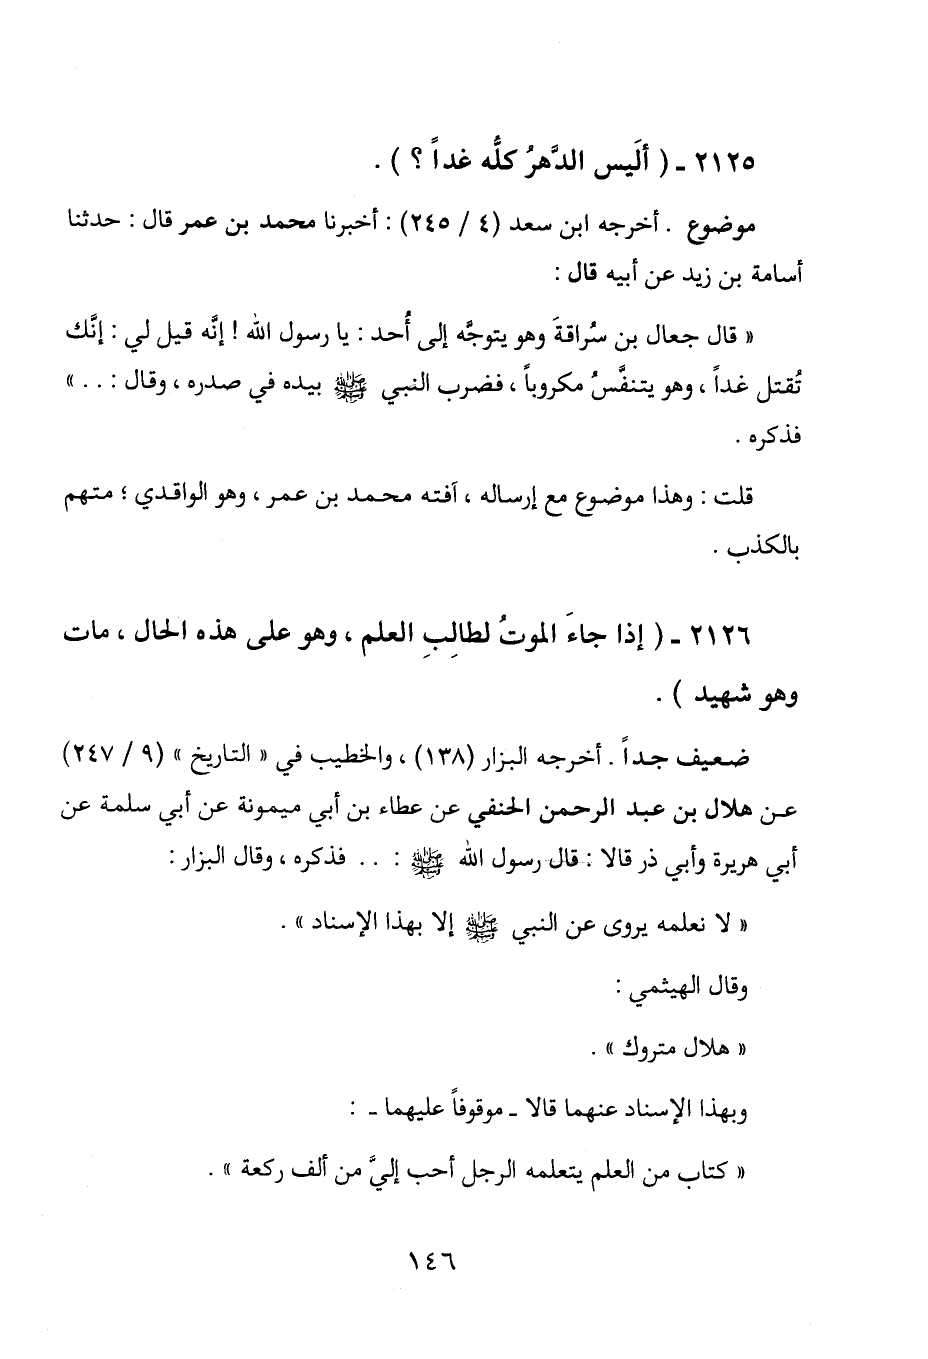 ٢١٢٥ ـ ( ألَيس الدَّهرُ كلُّه غداً ؟ ) .
موضوع . أخرجه ابن سعد (٤ / ٢٤٥) : أخبرنا محمد بن عمر قال : حدثنا
أسامة بن زيد عن أبيه قال :
« قال جعال بن سُراقةَ وهو يتوجَّه إلى أُحد : يا رسول الله ! إنَّه قيل لي : إنَّك
تُقتل غداً ، وهو يتنفَّسُ مكروباً ، فضرب النبي ﷺ بيده في صدره ، وقال : . . »
فذكره .
قلت : وهذا موضوع مع إرساله ، آفته محمد بن عمر ، وهو الواقدي ؛ متهم
بالكذب .
٢١٢٦ ـ ( إذا جاءَ الموتُ لطالِبِ العلم ، وهو على هذه الحال ، مات
وهو شهيد ) .
ضعيف جداً . أخرجه البزار (١٣٨) ، والخطيب في « التاريخ » (٩ / ٢٤٧)
عن هلال بن عبد الرحمن الحنفي عن عطاء بن أبي ميمونة عن أبي سلمة عن
أبي هريرة وأبي ذر قالا : قال رسول الله ﷺ : . . فذكره ، وقال البزار :
« لا نعلمه يروى عن النبي ﷺ إلا بهذا الإسناد » .
وقال الهيثمي :
« هلال متروك » .
وبهذا الإسناد عنهما قالا ـ موقوفاً عليهما ـ :
« كتاب من العلم يتعلمه الرجل أحب إليَّ من ألف ركعة » .
١٤٦